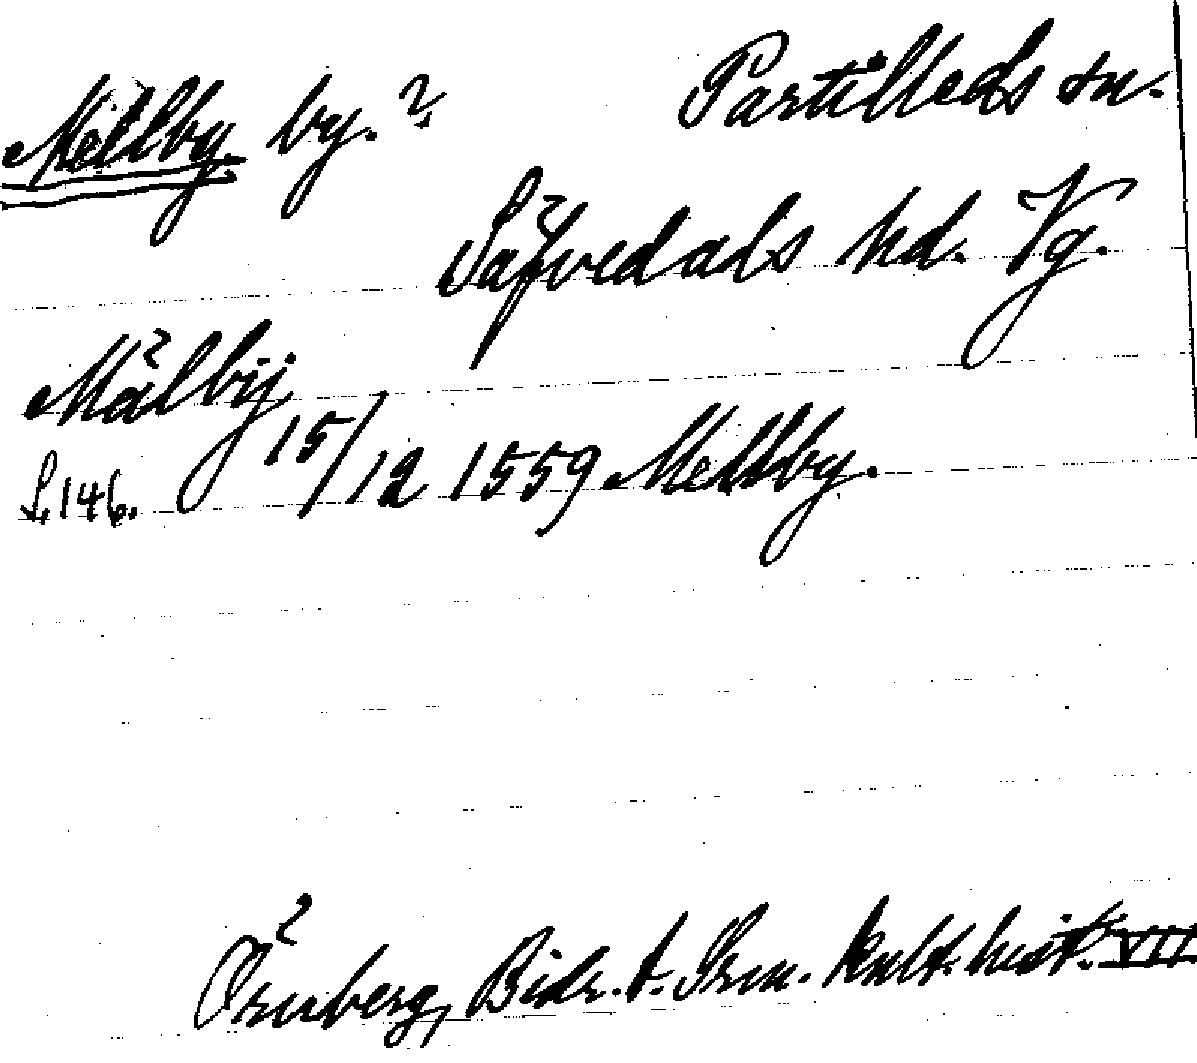 Mellby by. ? Partilleds sn.
Säfvedals hd. Vg.
Mälbij
S. 146. 15/12 1559 Mellby.
Örnberg, Bidr. t. Svn. kult. hist. VII